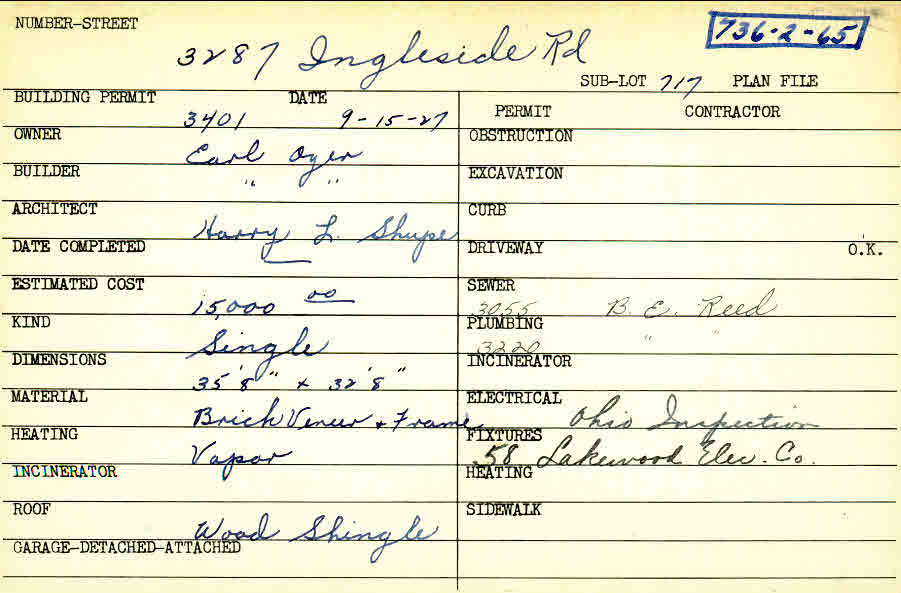 NUMBER-STREET
3287 Ingleside Rd
736-2-65
SUB-LOT 717 PLAN FILE
BUILDING PERMIT DATE
3401 9-15-27
OWNER
Earl Oyer
BUILDER
" " " "
ARCHITECT
Harry L. Shupe
DATE COMPLETED
ESTIMATED COST
15,000 00
KIND
Single
DIMENSIONS
35'8" x 32'8"
MATERIAL
Brick Veneer + Frame
HEATING
Vapor
INCINERATOR
ROOF
Wood Shingle
GARAGE-DETACHED-ATTACHED
PERMIT CONTRACTOR
OBSTRUCTION
EXCAVATION
CURB
DRIVEWAY O.K.
SEWER
3055 B. E. Reed
PLUMBING
3220 " "
INCINERATOR
ELECTRICAL
Ohio Inspection
FIXTURES
58 Lakewood Elec. Co.
HEATING
SIDEWALK